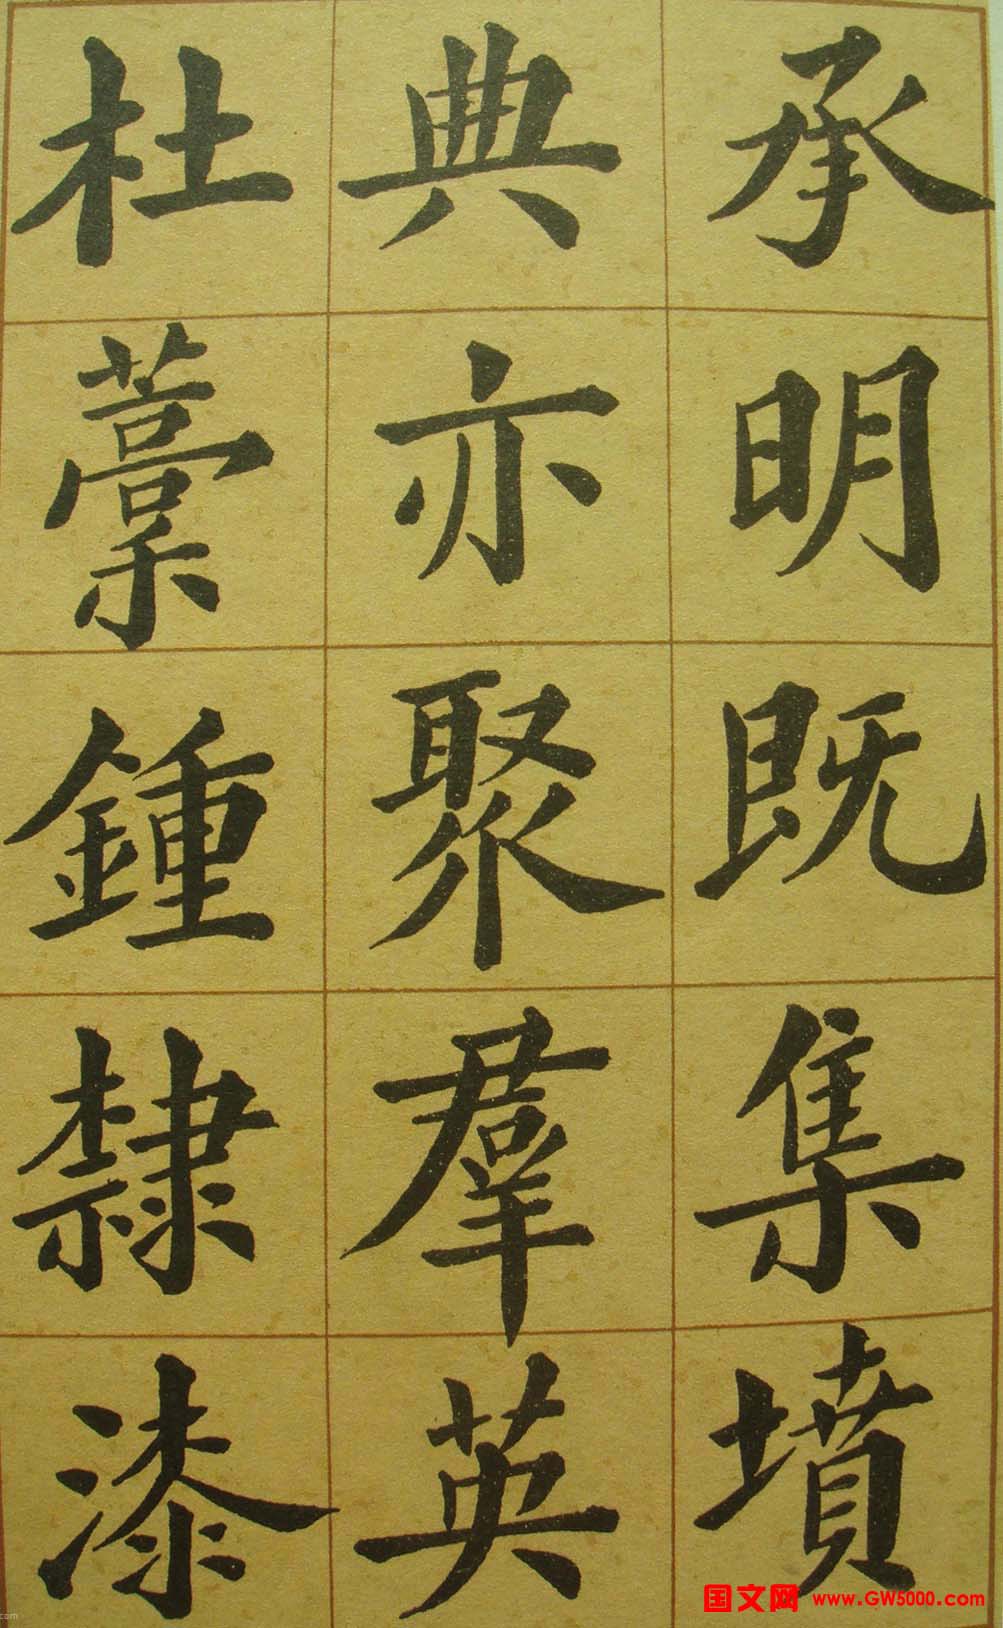 承明既集墳
典亦聚羣英
杜藁鍾隸漆
国文网 www.GW5000.com
com